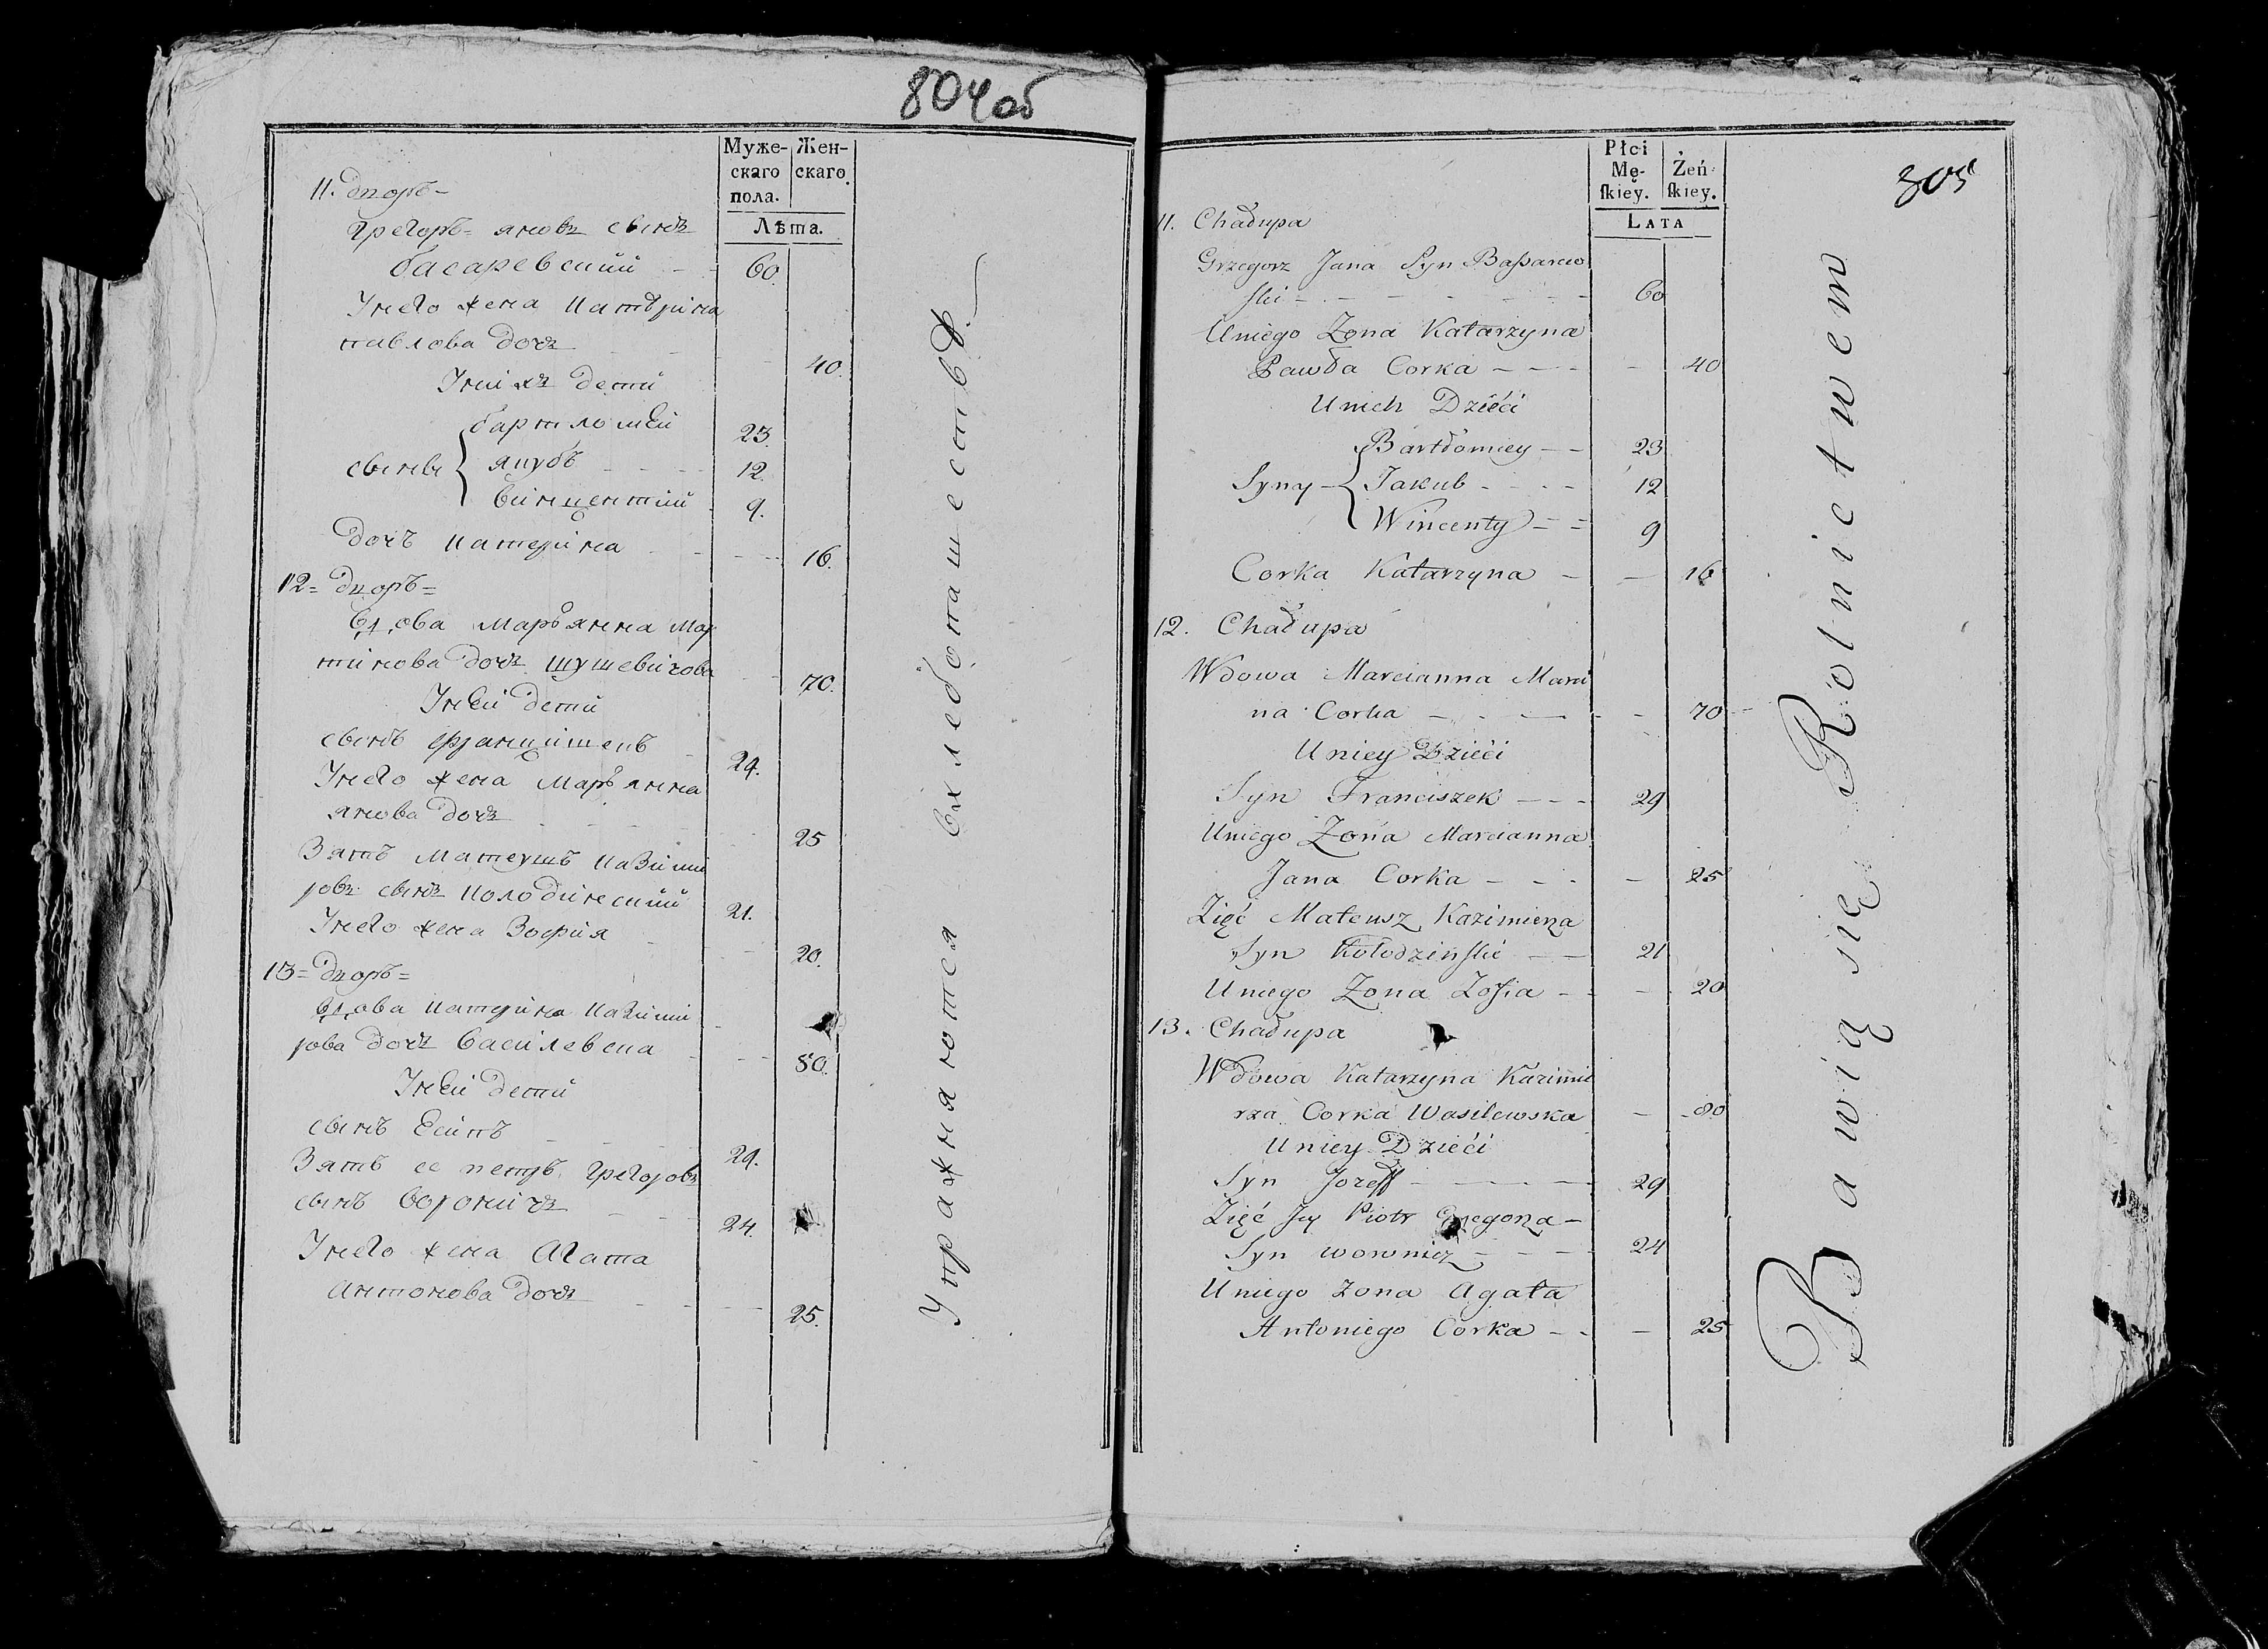 804об
Муже-
скаго
пола.
Жен-
скаго.
Лѣта.
11. дворъ-
Грегоръ= яновъ сынъ
басаревский - - 60.
Унего жена Катерина
павлова дочъ - - - 40.
Унихъ дети
бартломей 23.
сыны якубъ - - - 12.
винцентий - 9.
дочъ катерина - - - 16.
12= дворъ=
вдова маръянна мар
тинова дочъ шушевичова - - 70.
Уней дети
сынъ францишекъ - 29.
Унего жена Маръянна
янова дочъ - - - - 25
Зять матеушъ казими
ровъ сынъ колодинский 21.
Унего жена Зофия - - - 20.
13= дворъ=
вдова катерина казими
рова дочъ василевска - - - 80.
Уней дети
сынъ Есипъ - - - 29.
Зять ее петръ грегоровъ
сынъ вороничъ - - - 24.
Унего жена Агата
антонова дочъ - - - 25.
Упражняются вхлебопашестве.
805
Płci
Mę-
ſkiey.
Żeń-
ſkiey.
LATA
11. Chałupa
Grzegorz Jana Syn Baſsarew
ſki - - - - - 60
Uniego Zona Katarzyna
Pawła Corka - - - - 40
Unich Dzieći
Bartłomiey - - 23
Syny - Jakub - - - - 12
Wincenty - - 9
Corka Katarzyna - - 16
12. Chałupa
Wdowa Marcianna Marci
na Corka - - - - - 70
Uniey Dzieći
Syn Franciszek - - - 29
Uniego Zona Marcianna
Jana Corka - - - - 25
Zięć Mateusz Kazimierza
Syn Kołodzinſki - - 21
Uniego Zona Zofia - - - 20
13. Chałupa
Wdowa Katarzyna Kazimie
rza Corka Wasilewska - - 80
Uniey Dzieći
Syn Jozeff - - - - 29
Zięć Jey Piotr Grzegorza -
Syn worwnicz - - - - 24
Uniego zona Agata
Antoniego Corka - - - 25
Bawią się Rolnictwem